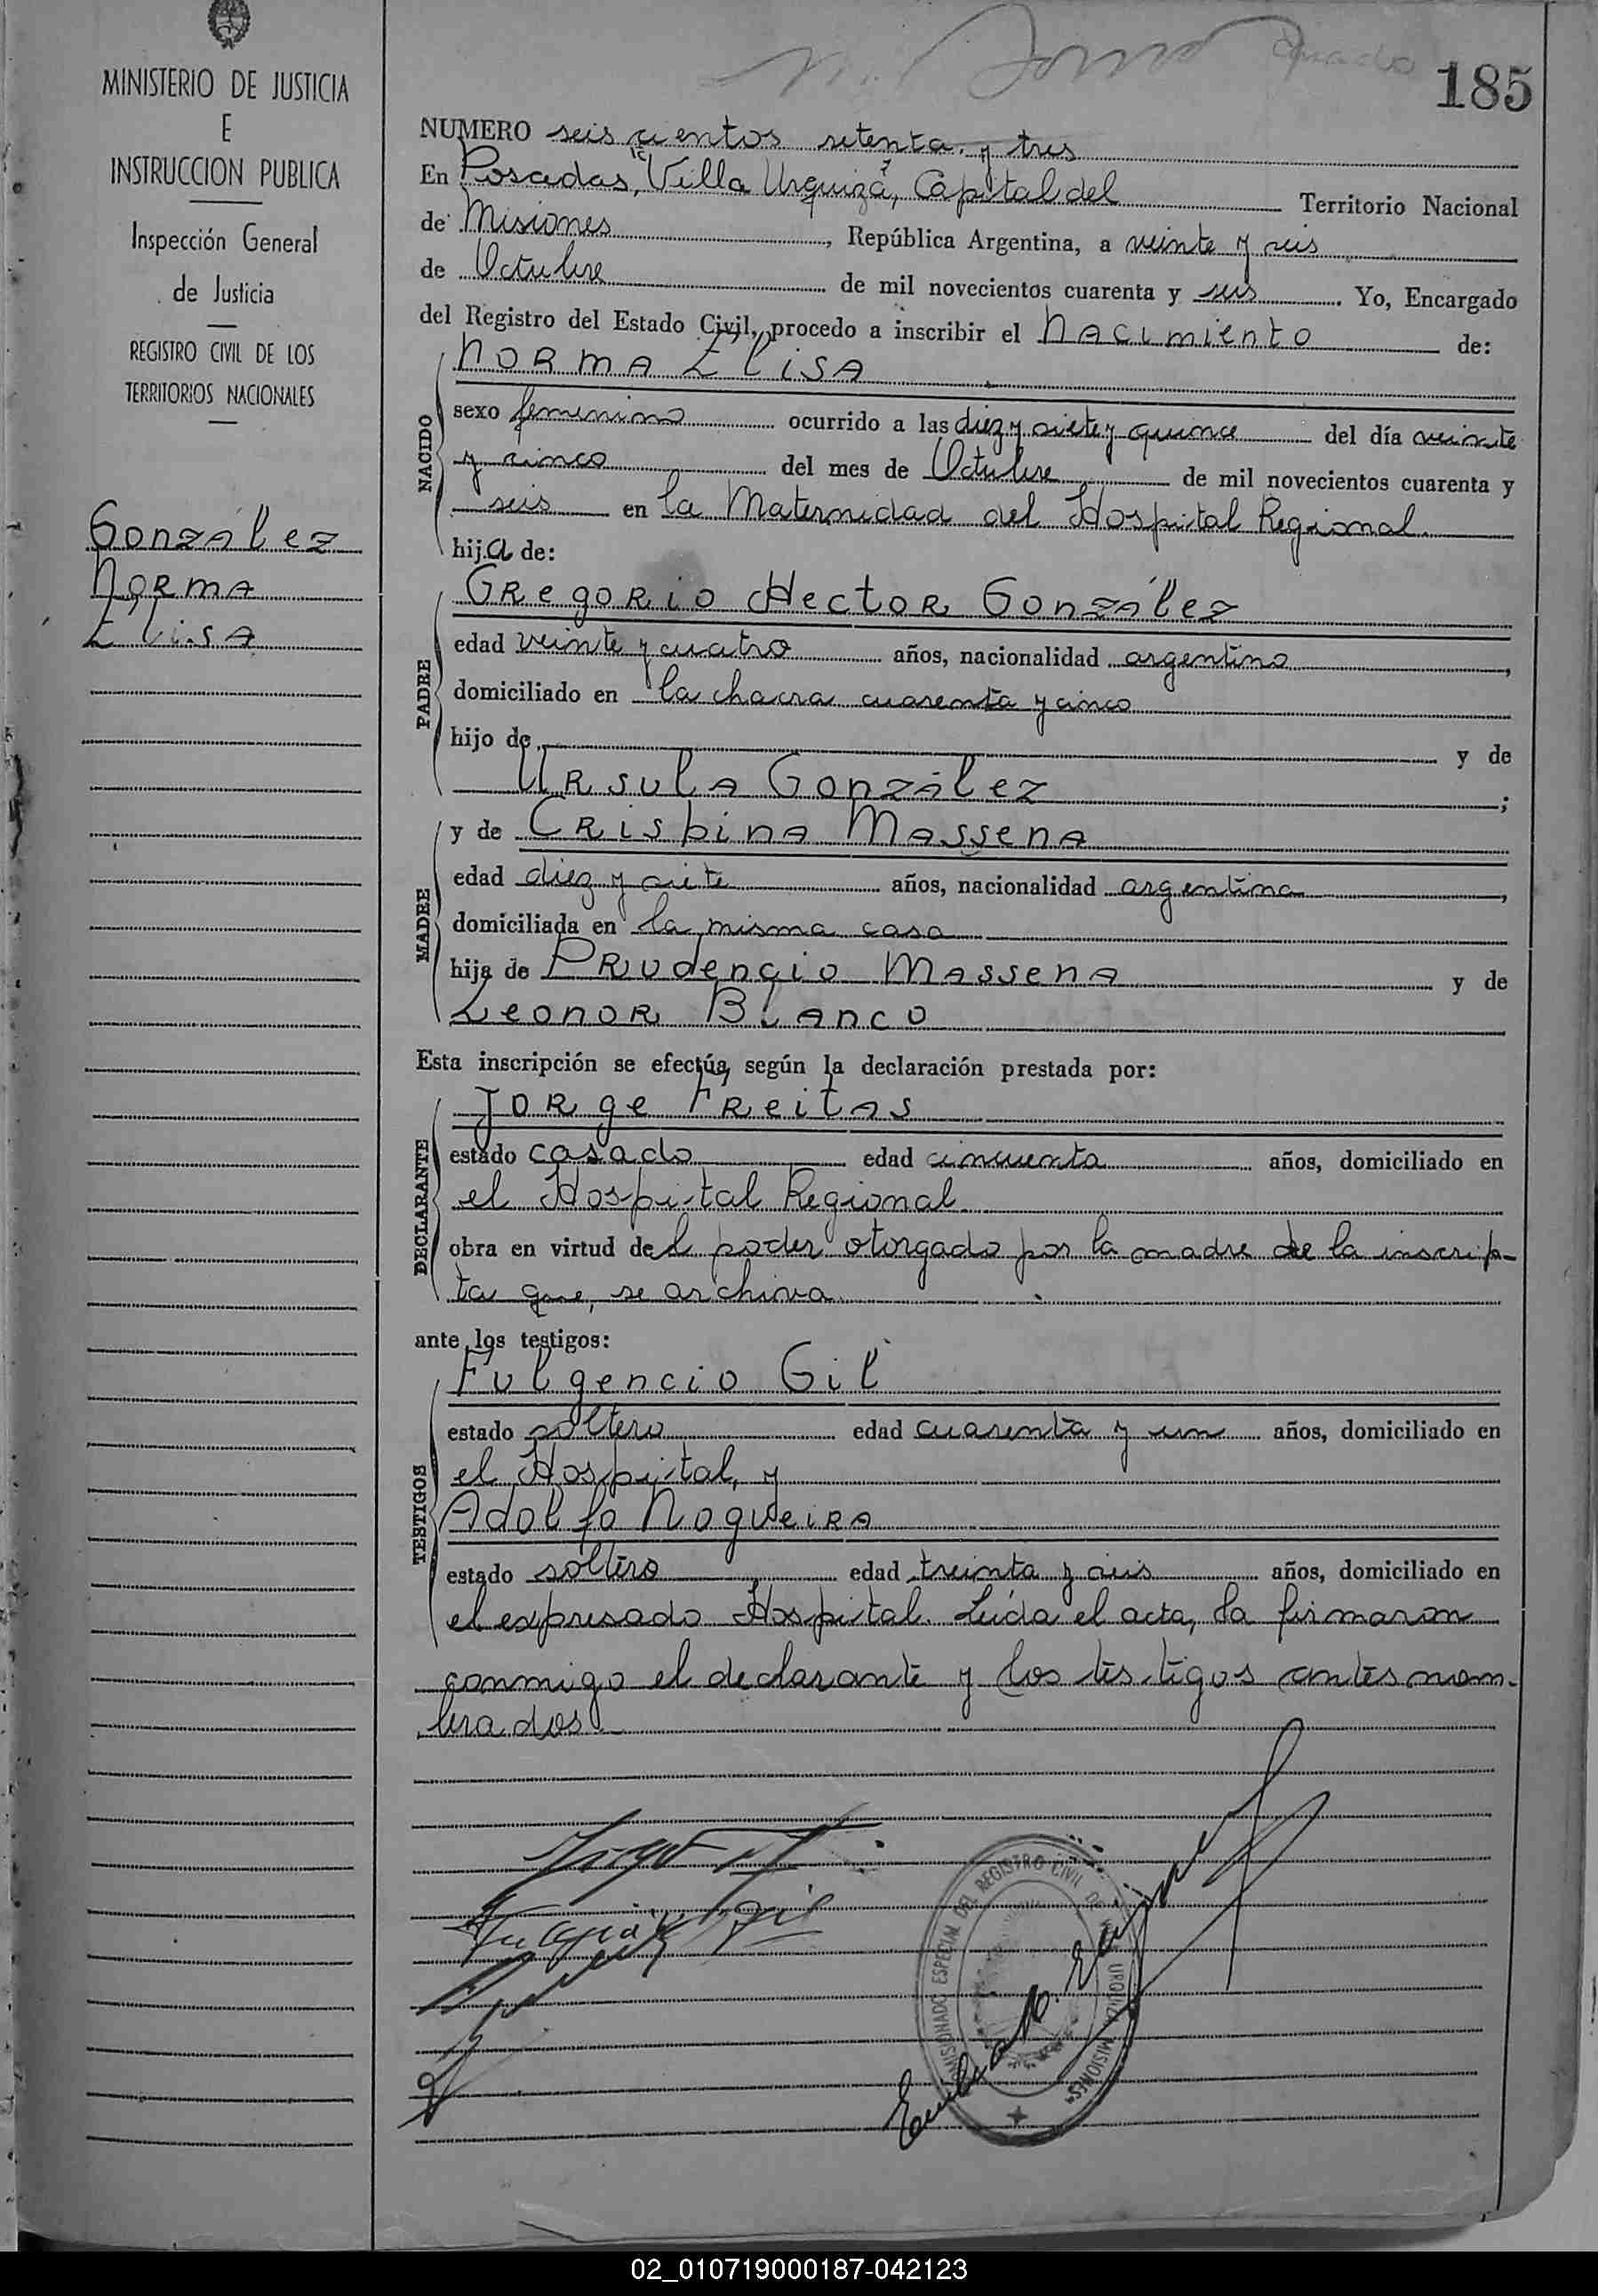 185
MINISTERIO DE JUSTICIA
E
INSTRUCCION PUBLICA
Inspección General
de Justicia
REGISTRO CIVIL DE LOS
TERRITORIOS NACIONALES
González
Norma
Elisa
NUMERO seis cientos setenta y tres
En Posadas, "Villa Urquiza", Capital del Territorio Nacional
de Misiones, República Argentina, a veinte y seis
de Octubre de mil novecientos cuarenta y seis. Yo, Encargado
del Registro del Estado Civil, procedo a inscribir el Nacimiento de:
NACIDO
Norma Elisa
sexo femenino ocurrido a las diez y siete y quince del día veinte
y cinco del mes de Octubre de mil novecientos cuarenta y
seis en la Maternidad del Hospital Regional.
hija de:
PADRE
Gregorio Hector González
edad veinte y cuatro años, nacionalidad argentino,
domiciliado en la chacra cuarenta y cinco
hijo de y de
Ursula González;
MADRE
y de Crispina Massena
edad diez y siete años, nacionalidad argentina,
domiciliada en la misma casa
hija de Prudencio Massena y de
Leonor Blanco
Esta inscripción se efectúa, según la declaración prestada por:
DECLARANTE
Jorge Freitas
estado casado edad cincuenta años, domiciliado en
el Hospital Regional
obra en virtud del poder otorgado por la madre de la inscrip-
ta que, se archiva
ante los testigos:
TESTIGOS
Fulgencio Gil
estado soltero edad cuarenta y un años, domiciliado en
el Hospital, y
Adolfo Nogueira
estado soltero edad treinta y seis años, domiciliado en
el expresado Hospital. Leída el acta, la firmaron
conmigo el declarante y los testigos antes nom-
brados
ESPECIAL DEL REGISTRO CIVIL DE URQUIZA MISIONES
02_010719000187-042123